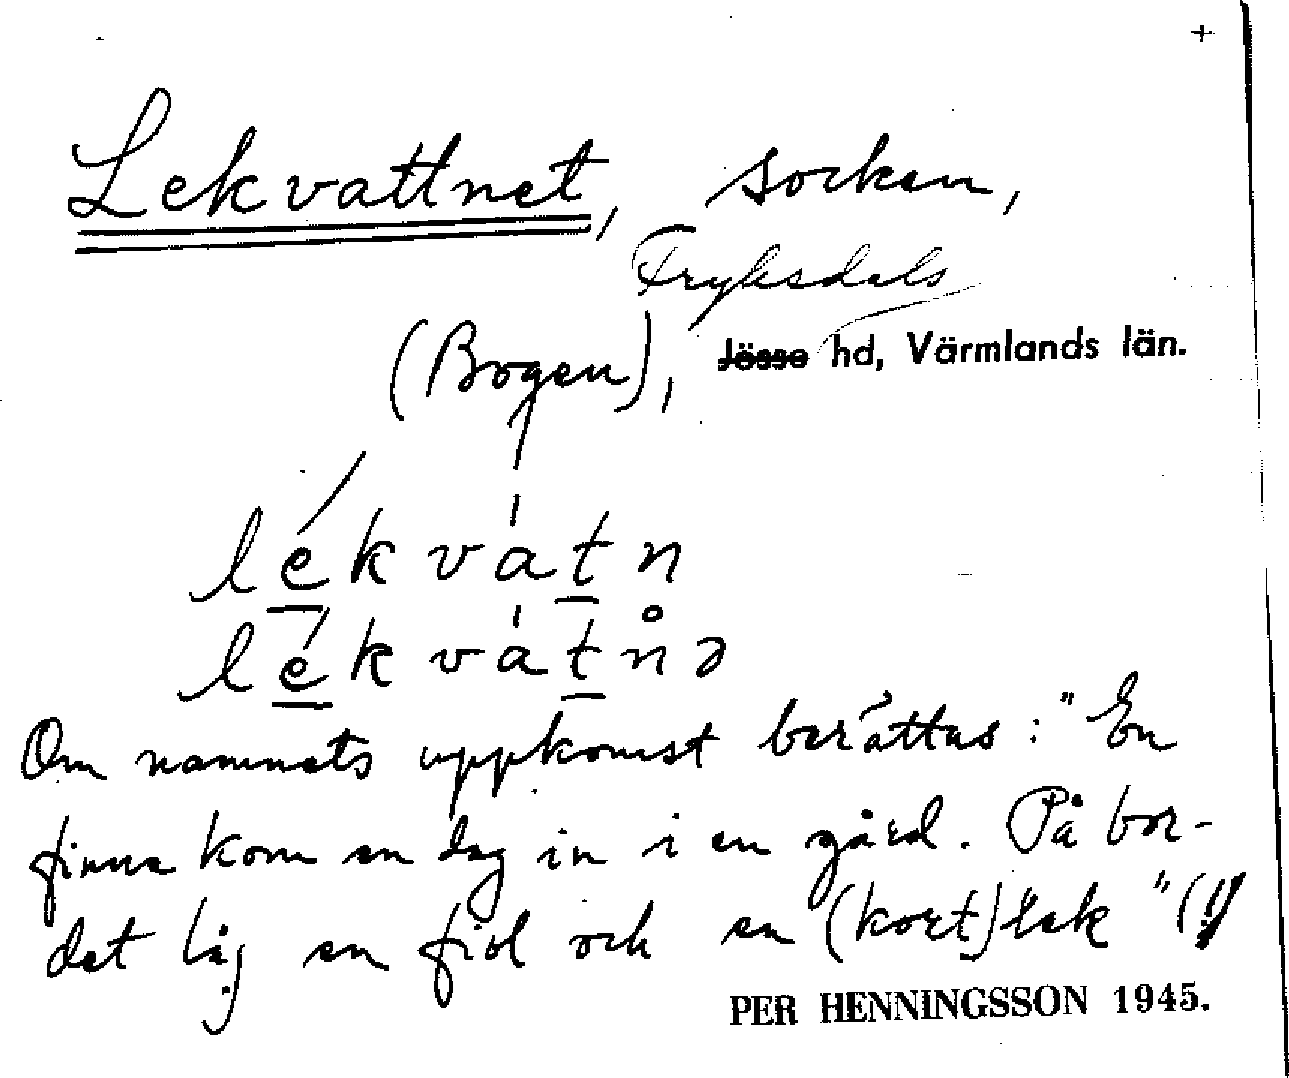 Lekvattnet, socken,
Fryksdals
(Bogen), Jösse hd, Värmlands län.
lékvátn
lékvátn̊ə
Om namnets uppkomst berättas: "En
finne kom en dag in i en gård. På bor-
det låg en fiol och en (kort)lek" (!)
PER HENNINGSSON 1945.